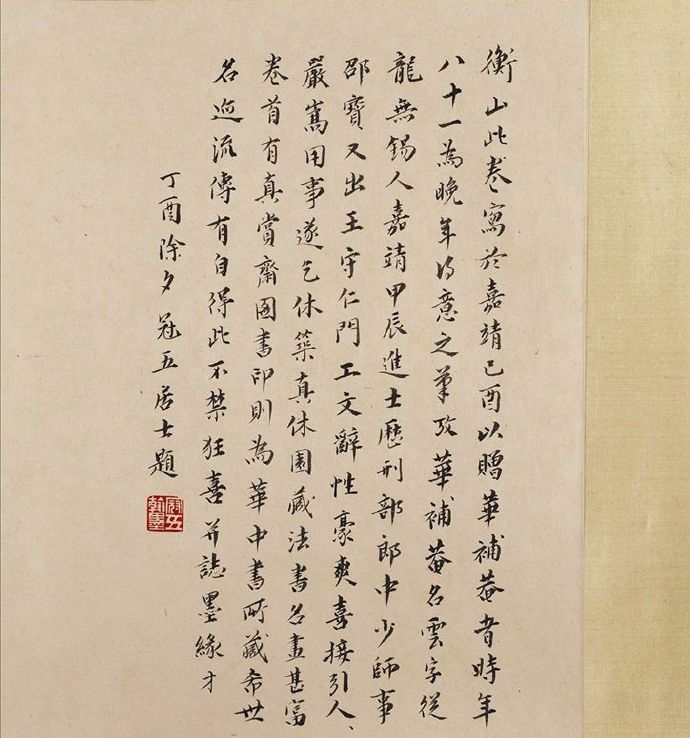 衡山此卷寫於嘉靖己酉以贈華補菴者時年
八十一為晚年得意之筆攷華補菴名雲字從
龍無錫人嘉靖甲辰進士歷刑部郎中少師事
邵寶又出王守仁門工文辭性豪爽喜接引人、
嚴嵩用事遂乞休築真休園藏法書名畫甚富
卷首有真賞齋圖書印則為華中書所藏希世
名迹流傳有自得此不禁狂喜并誌墨緣才
丁酉除夕冠五居士題
冠五翰墨